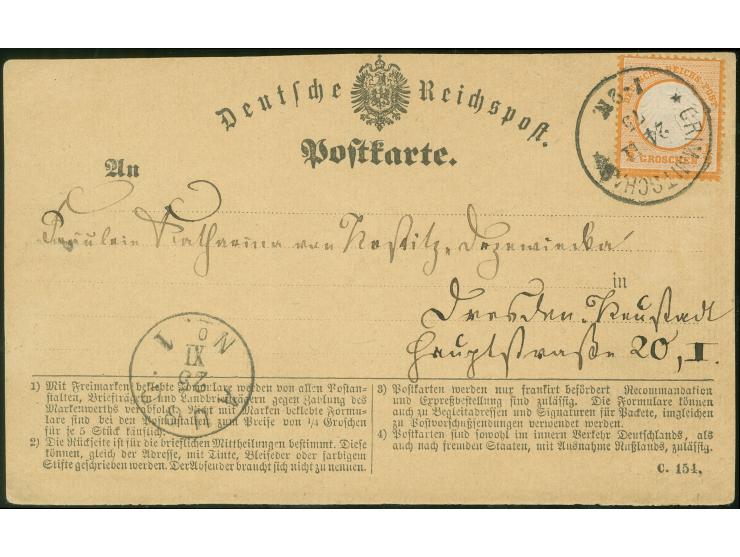 Deutsche Reichspost.
Postkarte.
GROSCHEN
An
Fräulein Katharina von Nostitz-Drzewiecka
in
Dresden-Neustadt
Hauptstraße 20, I.
1) Mit Freimarken beklebte Formulare werden von allen Postan-
stalten, Briefträgern und Landbriefträgern gegen Zahlung des
Markenwerths verabfolgt. Nicht mit Marken beklebte Formu-
lare sind bei den Postanstalten zum Preise von ¼ Groschen
für je 5 Stück käuflich.
2) Die Rückseite ist für die brieflichen Mittheilungen bestimmt. Diese
können, gleich der Adresse, mit Tinte, Bleifeder oder farbigem
Stifte geschrieben werden. Der Absender braucht sich nicht zu nennen.
3) Postkarten werden nur frankirt befördert Recommandation
und Expreßbestellung sind zulässig. Die Formulare können
auch zu Begleitadressen und Signaturen für Packete, imgleichen
zu Postvorschußsendungen verwendet werden.
4) Postkarten sind sowohl im innern Verkehr Deutschlands, als
auch nach fremden Staaten, mit Ausnahme Rußlands, zulässig.
C. 154.